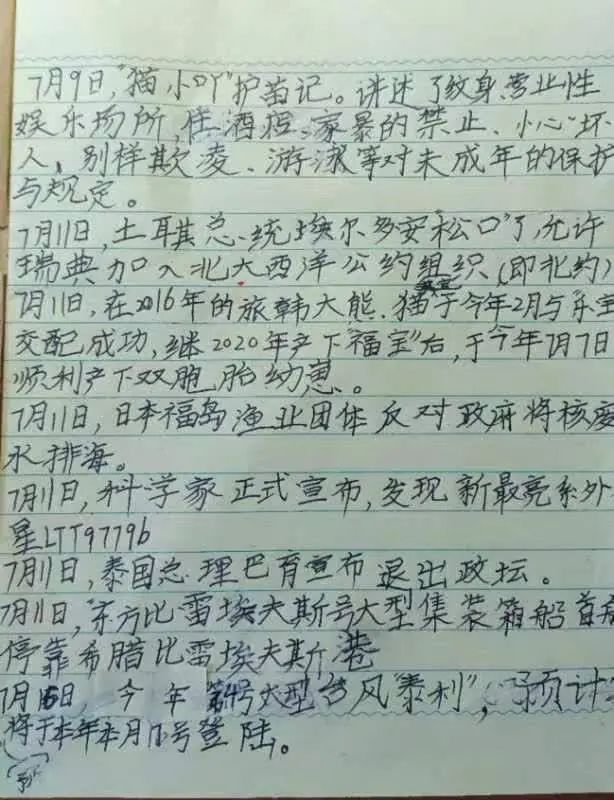 7月9日,"猫小丫"护苗记。讲述了纹身、营业性
娱乐场所,住酒店、家暴的禁止、小心"坏
人、别样欺凌、游戏等对未成年的保护
与规定。
7月11日,土耳其总统埃尔多安"松口"了,允许
瑞典加入北大西洋公约组织(即北约)
7月11日,在2016年的旅韩大熊猫 于今年2月与"乐宝
交配成功,继2020年产下"福宝"后,于今年7月7日
顺利产下双胞胎幼崽。
7月11日,日本福岛渔业团体反对政府将核废
水排海。
7月11日,科学家正式宣布,发现新最亮系外
星LTT9779b
7月11日,泰国总理巴育宣布退出政坛。
7月11日,"东方比雷埃夫斯号大型集装箱船首
停靠希腊比雷埃夫斯港
7月15日,今年第4号大型台风"泰利",预计
将于本年本月 号登陆。